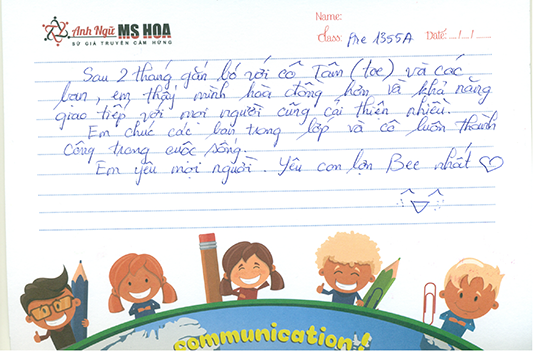 Anh Ngữ MS HOA
SỨ GIẢ TRUYỀN CẢM HỨNG
Name:
Class: Pre 1355A Date: .../.../...
Sau 2 tháng gắn bó với cô Tâm (toe) và các
bạn, em thấy mình hoà đồng hơn và khả năng
giao tiếp với mọi người cũng cải thiện nhiều.
Em chúc các bạn trong lớp và cô luôn thành
công trong cuộc sống.
Em yêu mọi người. Yêu con lợn Bee nhất
communication